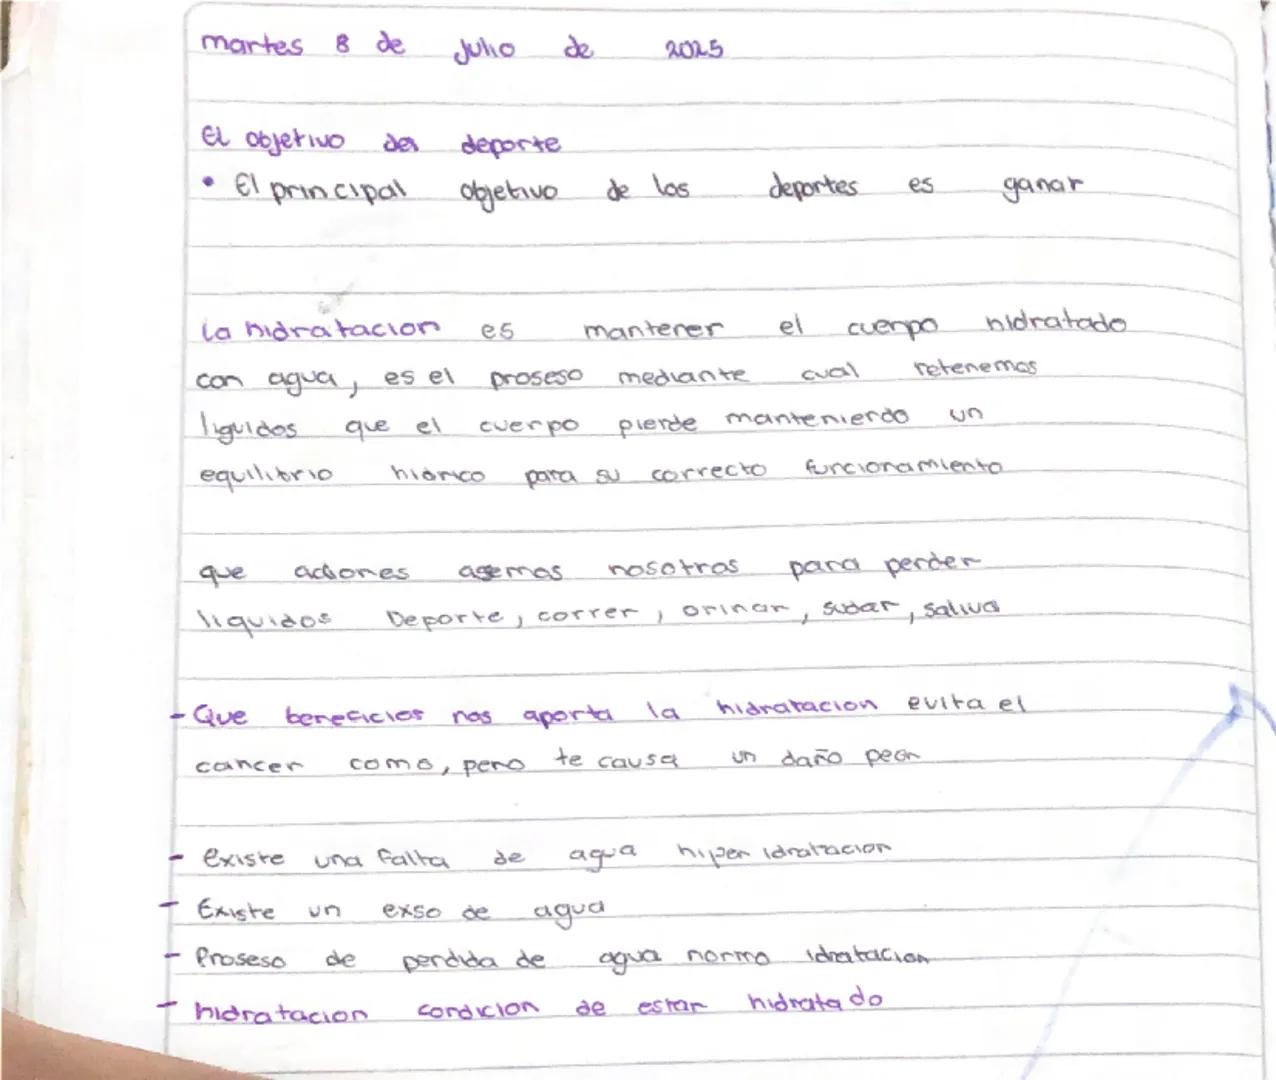 martes 8 de Julio de 2025
El objetivo del deporte
• El principal objetivo de los deportes es ganar
La hidratacion es mantener el cuerpo hidratado
con agua, es el proseso mediante cual retenemos
liguidos que el cuerpo pierde manteniendo un
equilibrio hidrico para su correcto funcionamiento
que aciones asemos nosotros para perder
liquidos Deporte, correr, orinar, sudar, saliva
- Que beneficios nos aporta la hidratacion evita el
cancer como, pero te causa un daño peor
- existe una falta de agua hiper idratacion
- Existe un exso de agua
- Proseso de perdida de agua normo idratacion
- hidratacion condicion de estar hidratado